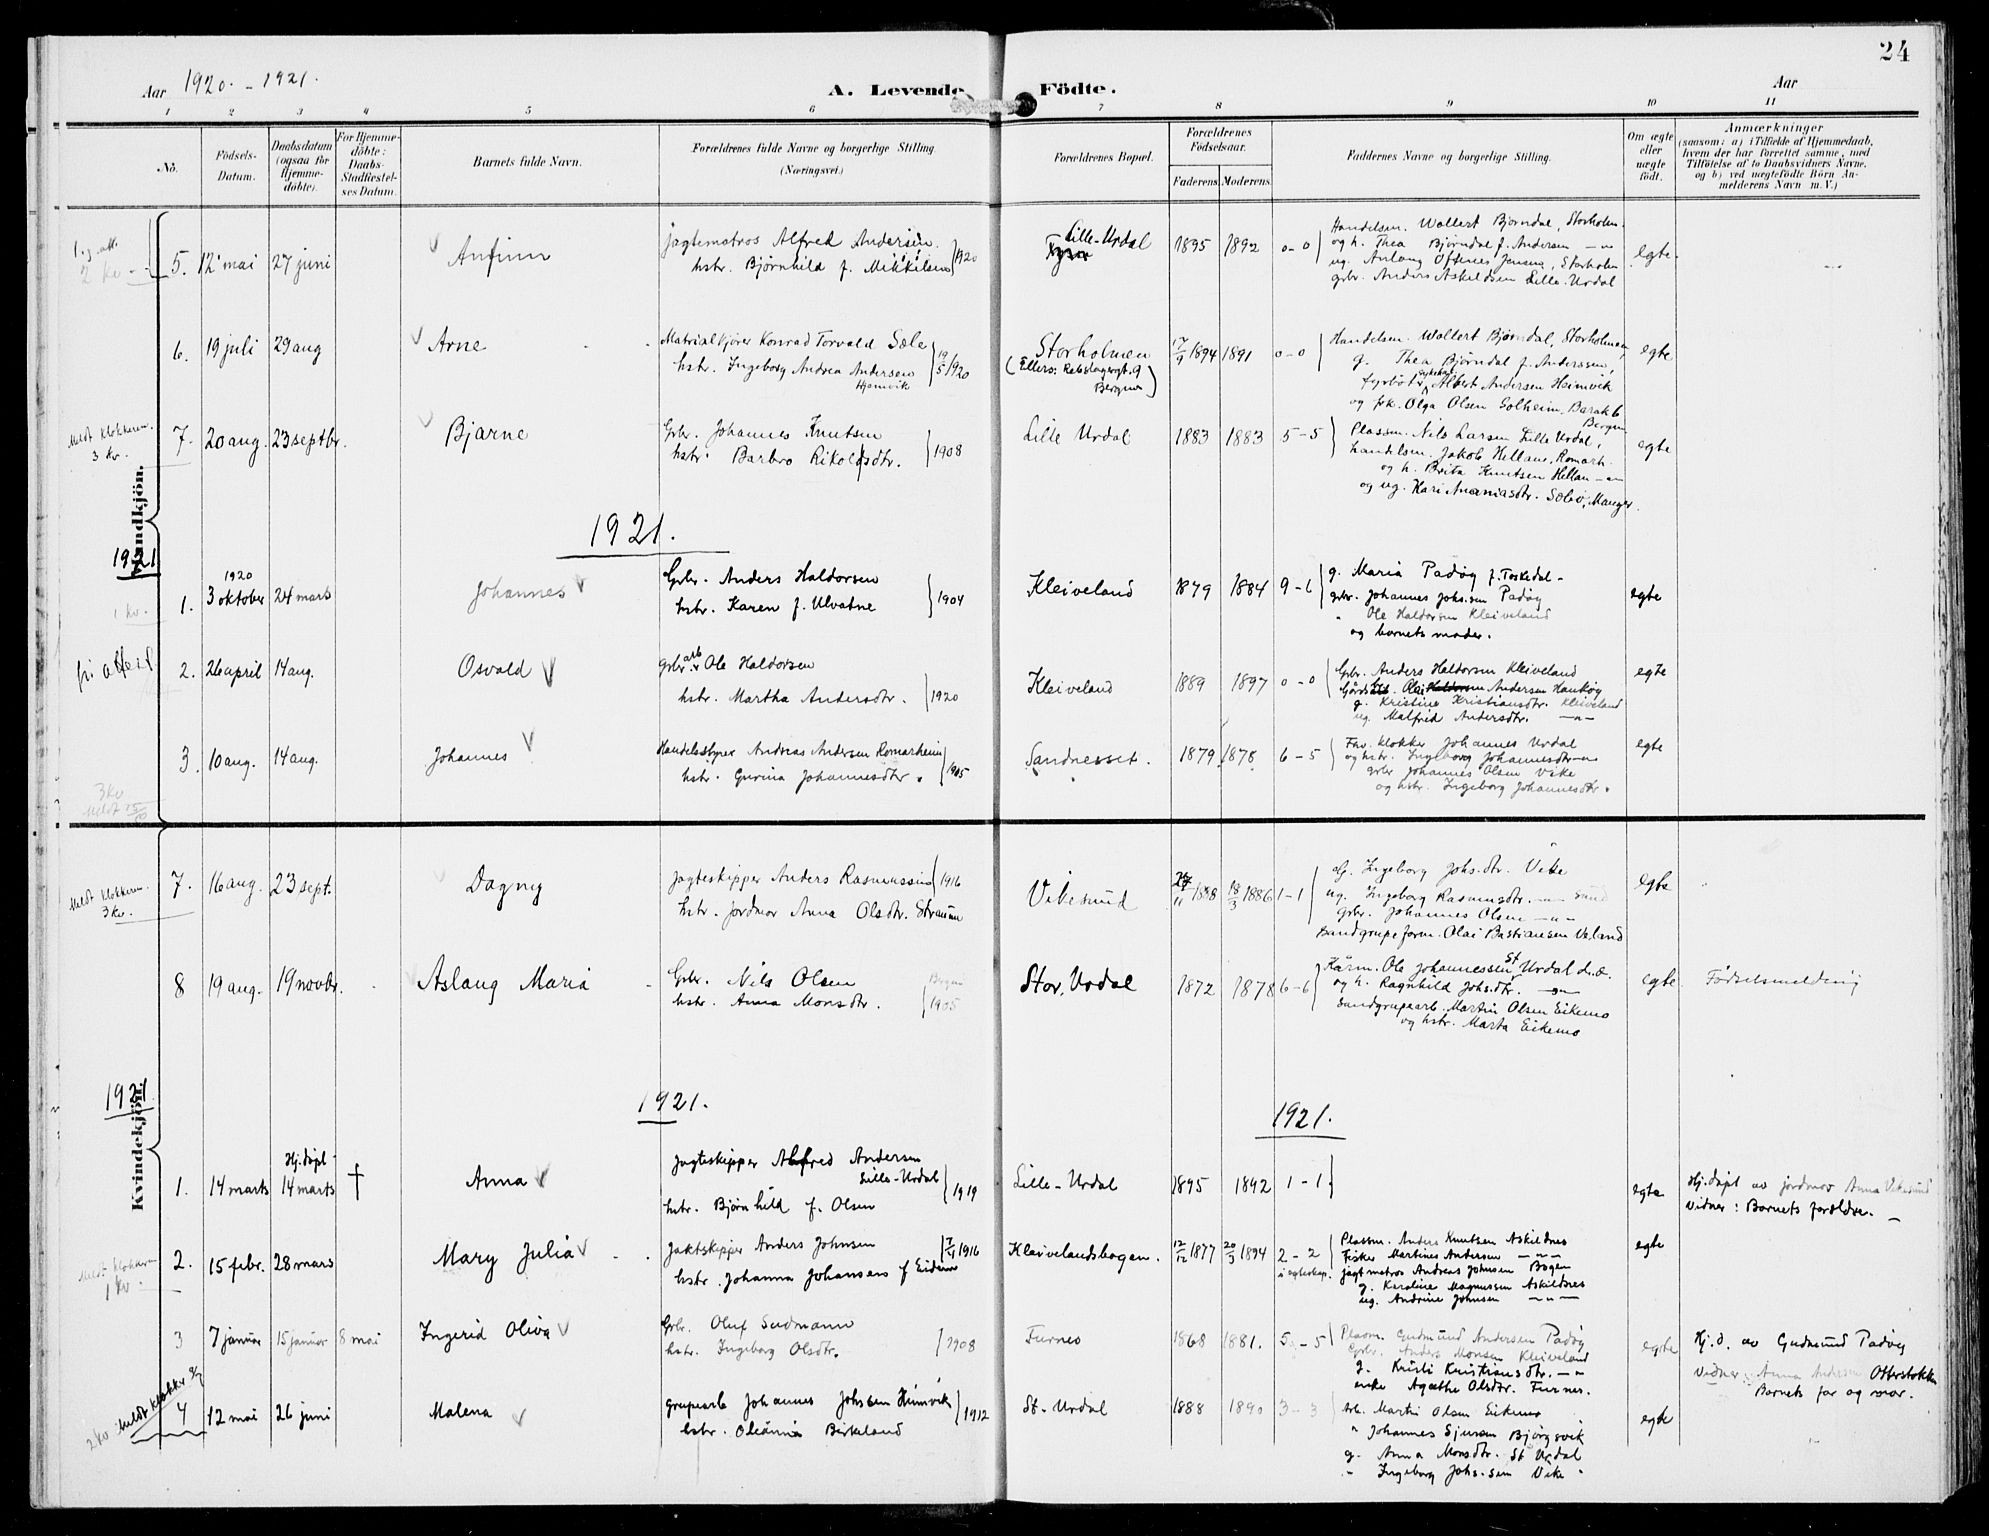 24
Aar 1920. - 1921.
A. Levende Födte.
Aar
1 2 3 4 5 6 7 8 9 10 11
No.
Födsels-Datum.
Daabsdatum (ogsaa for Hjemme-döbte).
For Hjemme-döbte: Daabs-Stadfæstel-ses Datum.
Barnets fulde Navn.
Forældrenes fulde Navne og borgerlige Stilling. (Næringsvei.)
Forældrenes Bopæl.
Forældrenes Födselsaar.
Faderens. Moderens.
Faddernes Navne og borgerlige Stilling.
Om ægte eller uægte födt.
Anmærkninger
(saasom: a) i Tilfælde af Hjemmedaab, hvem der har forrettet samme, med Tilföielse af to Daabsvidners Navne, og b) ved uægtefödte Börn An-melderens Navn m. V.)
Mandkjön.
5. 12 mai 27 juni Anfinn
jagtematros Alfred Andersen.
hstr. Bjørnhild f. Mikkelsen 1920
Lille-Urdal 1895 1892 0-0
Handelsm. Wollert Bjørndal, Storholm.
og h. Thea Bjørndal f. Andersen -"-
ug. Anlaug Oftenes Jensen, Storholm
grbr. Anders Askeldsen Lille-Urdal
egte.
6. 19 juli 29 aug Arne
Matrialkjører Konrad Torvald Sæle
hstr. Ingeborg Andrea Andersen Hjemvik 19/5 1920
Storholmen
(Ellers: Rebslagergt. 9 Bergen)
17/9 1894 1891 0-0
Handelsm. Wollert Bjørndal, Storholmen,
g. Thea Bjørndal f. Anderssen,
fyrbøter Albert Andersen Heimvik
og frk. Olga Olsen Solheim, Barak 6 Bergen
egte
Meldt klokkeren.
3 kr.
7. 20 aug. 23 septbr. Bjarne
Grbr. Johannes Knutsen
hstr. Barbro Rikoldsdtr. 1908
Lille Urdal 1883 1883 5-5
Plassm. Nils Larsen Lille Urdal,
handelsm. Jakob Hellan, Romarh.
og h. Brita Knutsen Hellan -"-
og ug. Kari Ananiasdtr. Solvi, Manger.
egte
1921.
1921
1920
1. 3 oktober 24 mars Johannes
Grbr. Anders Haldorsen
hstr. Karen f. Ulvatne 1904
Kleiveland 1879 1884 9-6
g. Maria Padøy f. Toskedal-
grbr. Johannes Johs.sen Padøy
" Ole Haldorsen Kleiveland
og barnets moder.
egte
1 kr.
2. 26 april 14 aug. Osvald
grbr. arb Ole Haldorsen
hstr. Martha Andersdtr. 1920
Kleiveland 1889 1897 0-0
Grbr. Anders Haldorsen Kleiveland
Andersen
g. Kristine Kristiansdtr. Kleiveland
ug. Malfrid Andersdtr. -"-
egte
3. 10 aug. 14 aug. Johannes
Handelsstyrer Andreas Andersen Romarheim
hstr. Gurina Johannesdtr. 1905
Sandnesset. 1879 1878 6-5
Fhv. klokker Johannes Urdal
og hstr. Ingeborg Johannesdtr -"-
grbr Johannes Olsen Vike
og hstr. Ingeborg Johannesdtr.
egte
3 kr
Meldt
Kvindekjön.
Meldt klokkeren.
3 kr.
7. 16 aug. 23 sept. Dagny
Jagteskipper Anders Rasmussen 1916
hstr. jordmor Anna Olsdtr. Straume
Vikesund 1888 18/3 1886 1-1
g. Ingeborg Johs.dtr. Vike
ug. Ingeborg Rasmusdtr. -"- sund
grbr. Johannes Olsen -"-
sandgrupeform. Olai Bastiansen Veland
egte
8 19 aug. 19 novbr. Aslaug Maria
Grbr. Nils Olsen
hstr. Anna Monsdtr. Bergen 1905
Stor-Urdal 1872 1878 6-6
Kårm. Ole Johannessen St Urdal d.e.
og h. Ragnhild Johs.dtr. -"-
Sandgrupearb. Martin Olsen Eikemo
og hstr. Marta Eikemo
egte Fødselsmelding
1921
1921. 1921.
1. 14 marts Hj.døpt 14 marts † Anna
Jagteskipper Alfred Andersen Lille-Urdal
hstr. Bjørnhild f. Olsen 1919
Lille-Urdal 1895 1892 1-1
egte
Hj.døpt av jordmor Anna Vikesund
Vidner: Barnets foreldre.
Meldt klokkeren
1 kr.
2. 15 febr. 28 mars Mary Julia
Jaktskipper Anders Johnsen
hstr. Johanna Johansens f Eidem 1916
Kleivelandsbogen. 12/12 1877 20/3 1894 2-2
i egteskap.
Plassm. Anders Knutsen Askildnes
Fisker Martines Andersen -"-
jagtmatros Andreas Johnsen Bogen
g. Karoline Magnussen Askildnes
ug. Andrine Johnsen -"-
egte
3 7 januar 15 januar 8 mai Ingerid Oliva
Grbr. Oluf Sudmann
hstr. Ingeborg Olsdtr. 1908
Furnes 1868 1881. 5-5
Plasm. Gudmund Andersen Padøy
Grbr. Anders Monsen Kleiveland
g. Kristi Kristiansdtr. -"-
enke Agathe Olsdtr. Furnes.
egte
Hj.d. av Gudmund Padøy
Vidner: Anna Andersen Otterstokken
Barnets far og mor.
2 kr Meldt klokker
4 12 mai 26 juni Malena
grupearb Johannes Johssen Heimvik
hstr. Oleanna Birkeland 1912
St-Urdal 1888 1890 3-3
Arb. Martin Olsen Eikemo
" Johannes Sjursen Bjørgsvik
g. Anna Monsdtr. St Urdal
" Ingeborg Johs.sen Vike
egte